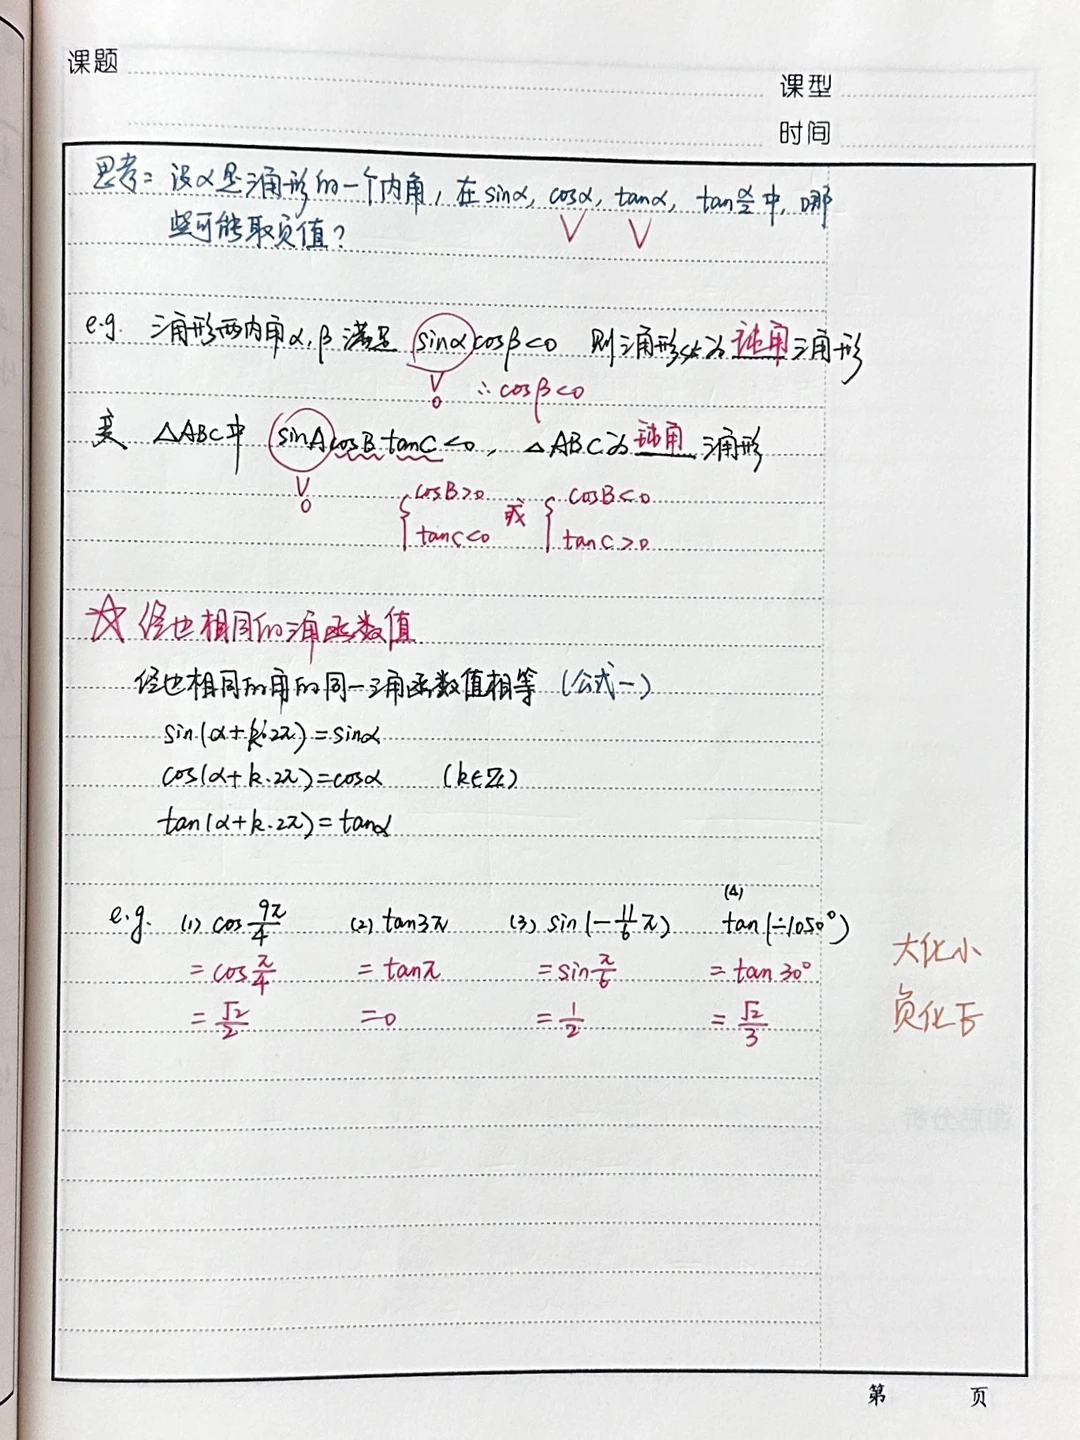 课题
课型
时间
思考：设α是三角形的一个内角，在sinα，cosα，tanα，tan α/2 中，哪
些可能取负值？
√ √
e.g. 三角形两内角α，β满足 sinα cosβ<0 则三角形必为钝角三角形
∨
0 ∴cosβ<0
变 △ABC中 sinA cosB tanC<0，△ABC为钝角三角形
∨
0
{cosB>0 或 {cosB<0
tanC<0 tanC>0
☆ 终边相同的三角函数值
终边相同的角的同一三角函数值相等（公式一）
sin(α+k·2π)=sinα
cos(α+k·2π)=cosα (k∈Z)
tan(α+k·2π)=tanα
e.g. (1) cos 9π/4 (2) tan3π (3) sin(-11/6 π) (4) tan(-1050°)
=cos π/4 =tanπ =sin π/6 =tan30°
=√2/2 =0 =1/2 =√2/3
大化小
负化正
第 页